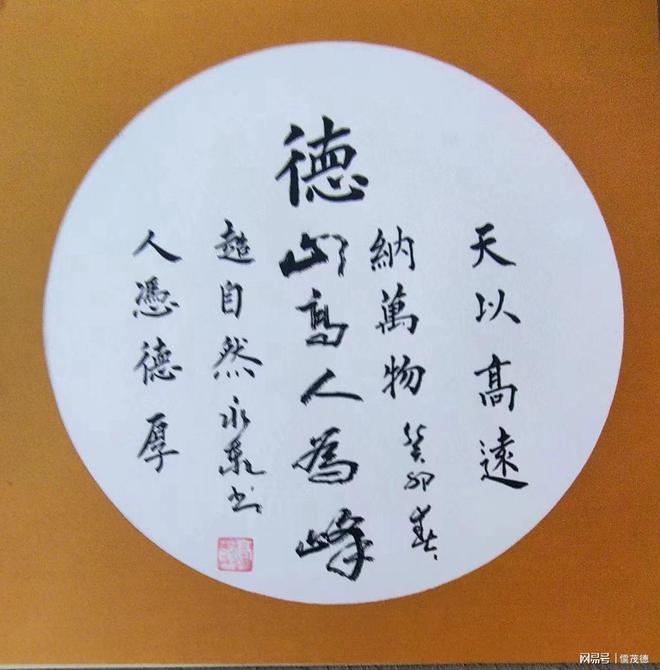 德
天以髙遠
納萬物
癸卯春
高人為峰
超自然
永书
人憑德厚
网易号 | 儒茂德